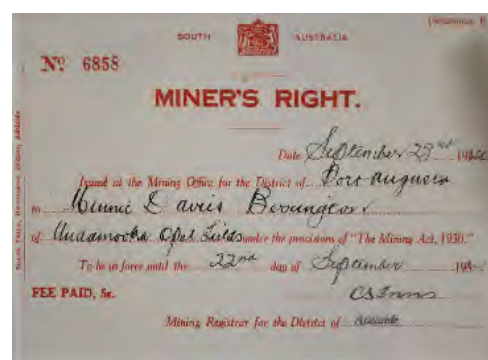 SOUTH AUSTRALIA
Nº 6858
MINER'S RIGHT.
Date September 23rd
Issued at the Mining Office for the District of Port Augusta
to Minnie Davis
of Andamooka Opal Fields under the provisions of "The Mining Act, 1930."
To be in force until the 22nd day of September
FEE PAID, 5s.
Mining Registrar for the District of Adelaide